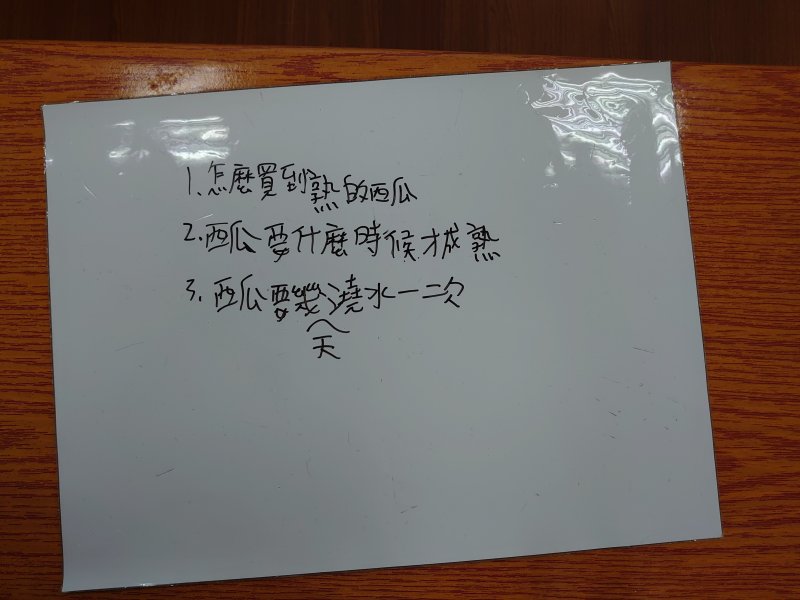 1.怎麼買到熟的西瓜
2.西瓜要什麼時候才成熟
3.西瓜要幾天澆水一次